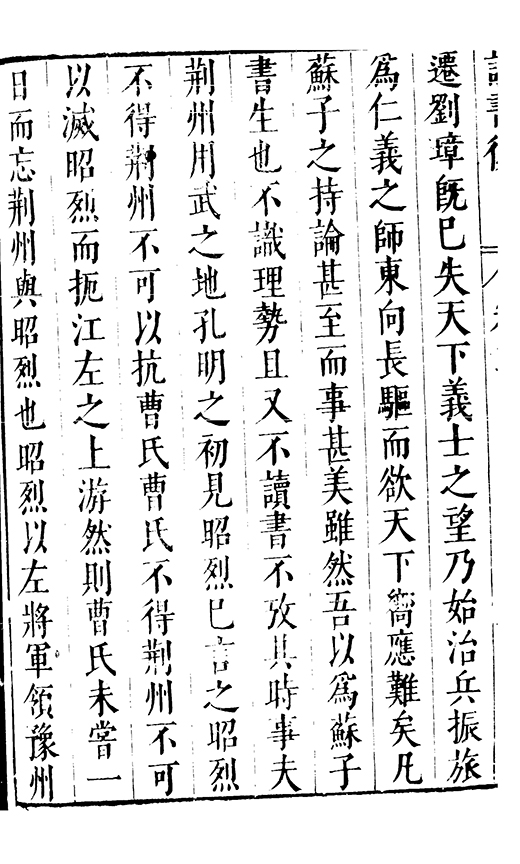 讀書後
遷劉璋旣已失天下義士之望乃始治兵振旅
爲仁義之師東向長驅而欲天下嚮應難矣凡
蘇子之持論甚至而事甚美雖然吾以爲蘇子
書生也不識理勢且又不讀書不攷其時事夫
荆州用武之地孔明之初見昭烈已言之昭烈
不得荆州不可以抗曹氏曹氏不得荆州不可
以滅昭烈而扼江左之上游然則曹氏未嘗一
日而忘荆州與昭烈也昭烈以左將軍領豫州